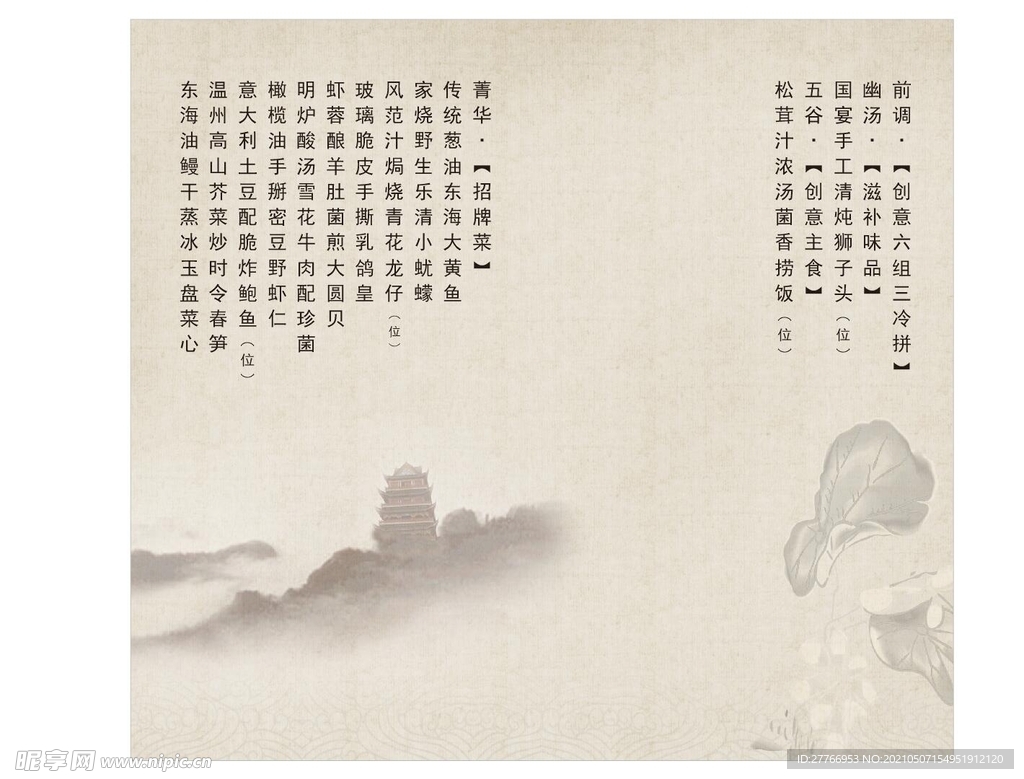 前调·【创意六组三冷拼】
幽汤·【滋补味品】
国宴手工清炖狮子头（位）
五谷·【创意主食】
松茸汁浓汤菌香捞饭（位）
菁华·【招牌菜】
传统葱油东海大黄鱼
家烧野生乐清小蚘蠓
风范汁焗烧青花龙仔（位）
玻璃脆皮手撕乳鸽皇
虾蓉酿羊肚菌煎大圆贝
明炉酸汤雪花牛肉配珍菌
橄榄油手掰密豆野虾仁
意大利土豆配脆炸鲍鱼（位）
温州高山芥菜炒时令春笋
东海油鳗干蒸冰玉盘菜心
昵享网 www.nipic.cn
ID:27766953 NO:20210507154951912120